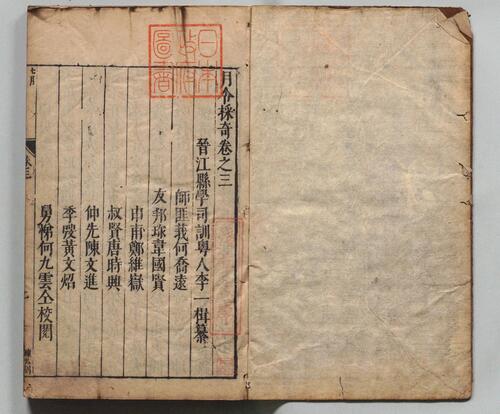 日本
政府
圖書
月令採奇卷之三
晉江縣學司訓粤人李一楫纂
師匪莪何喬遠
友邦珎韋國賢
由甫鄭維嶽
叔賢唐時興
仲先陳文進
季弢黃文炤
舅悌何九雲仝校閱
七月
卷三